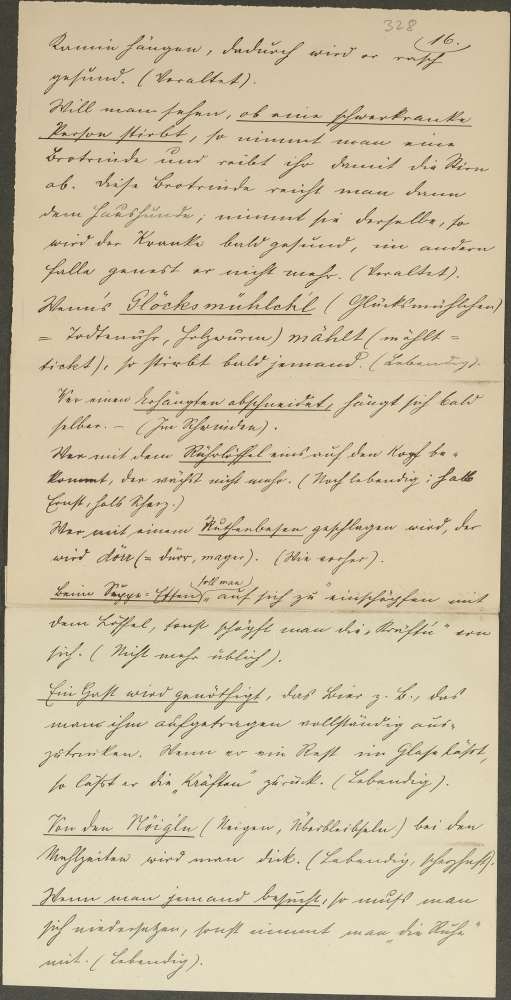 328
16.
Kamin hängen, dadurch wird er rasch
gesund. (Veraltet).
Will man sehen, ob eine schwerkranke
Person stirbt, so nimmt man eine
Brotrinde und reibt ihr damit die Stirn
ab. Diese Brotrinde reicht man dann
dem Haushunde; nimmt sie derselbe, so
wird der Kranke bald gesund, im andern
Falle genest er nicht mehr. (Veraltet).
Wenn's Glöcksmühlchl (Glücksmühlchen)
= Todtenuhr, Holzwurm) mahlt (mählt =
tickt), so stirbt bald jemand. (Lebendig).
Wer einen Erhängten abschneidet, hängt sich bald
selber. – (Im Schwinden).
Wer mit dem Rührlöffel eins auf den Kopf be-
kommt, der wächst nicht mehr. (Noch lebendig; halb
Ernst, halb Scherz.)
Wer mit einem Ruthenbesen geschlagen wird, der
wird dörr (= dürr, mager). (Wie vorher).
Beim Suppe-Essen soll man "auf sich zu" einschöpfen mit
dem Löffel, sonst schöpft man die "Kräftn" von
sich. (Nicht mehr üblich).
Ein Gast wird genöthigt, das Bier z. B., das
man ihm aufgetragen vollständig aus-
zutrinken. Wenn er ein Rest im Glase läßt,
so läßt er die "Kräften" zurück. (Lebendig).
Von den Nöigln (Neigen, Überbleibseln) bei den
Mahlzeiten wird man dick. (Lebendig, scherzhaft).
Wenn man jemand besucht, so muß man
sich niedersetzen, sonst nimmt man "die Ruhe"
mit. (Lebendig).